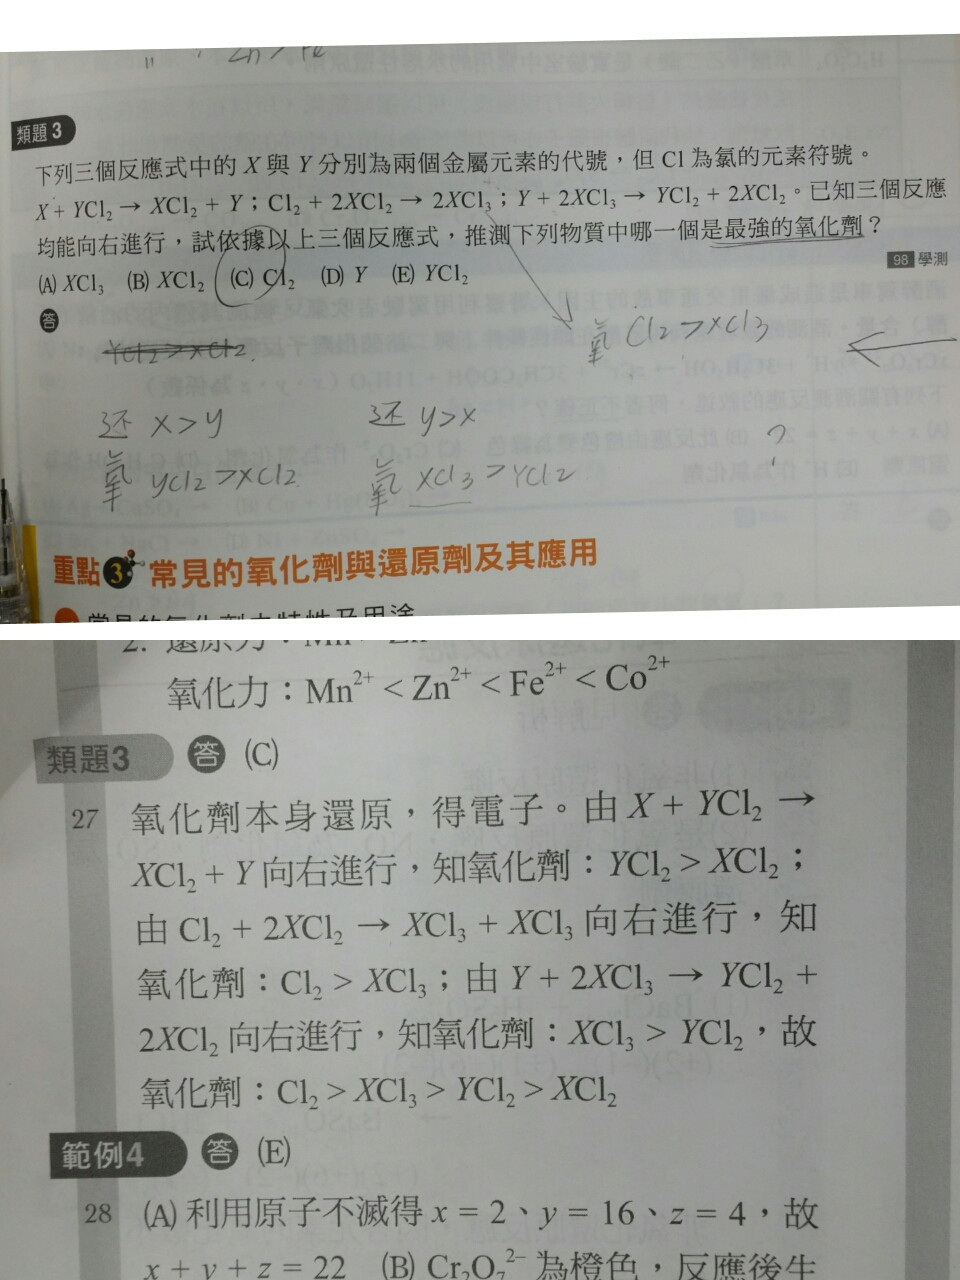 Zn > Fe
類題 3
下列三個反應式中的 X 與 Y 分別為兩個金屬元素的代號，但 Cl 為氯的元素符號。
X + YCl₂ → XCl₂ + Y；Cl₂ + 2XCl₂ → 2XCl₃；Y + 2XCl₃ → YCl₂ + 2XCl₂。已知三個反應
均能向右進行，試依據以上三個反應式，推測下列物質中哪一個是最強的氧化劑？
98 學測
(A) XCl₃ (B) XCl₂ (C) Cl₂ (D) Y (E) YCl₂
答
YCl2 > XCl2
氧 Cl2 > XCl3
还 X > Y
还 Y > X
?
氧 YCl2 > XCl2
氧 XCl3 > YCl2
重點 3 常見的氧化劑與還原劑及其應用
常見的氧化劑之特性及用途
2. 還原力：Mn > Zn
氧化力：Mn²⁺ < Zn²⁺ < Fe²⁺ < Co²⁺
類題3 答 (C)
27 氧化劑本身還原，得電子。由 X + YCl₂ →
XCl₂ + Y 向右進行，知氧化劑：YCl₂ > XCl₂；
由 Cl₂ + 2XCl₂ → XCl₃ + XCl₃ 向右進行，知
氧化劑：Cl₂ > XCl₃；由 Y + 2XCl₃ → YCl₂ +
2XCl₂ 向右進行，知氧化劑：XCl₃ > YCl₂，故
氧化劑：Cl₂ > XCl₃ > YCl₂ > XCl₂
範例4 答 (E)
28 (A) 利用原子不滅得 x = 2、y = 16、z = 4，故
x + y + z = 22 (B) Cr₂O₇²⁻ 為橙色，反應後生